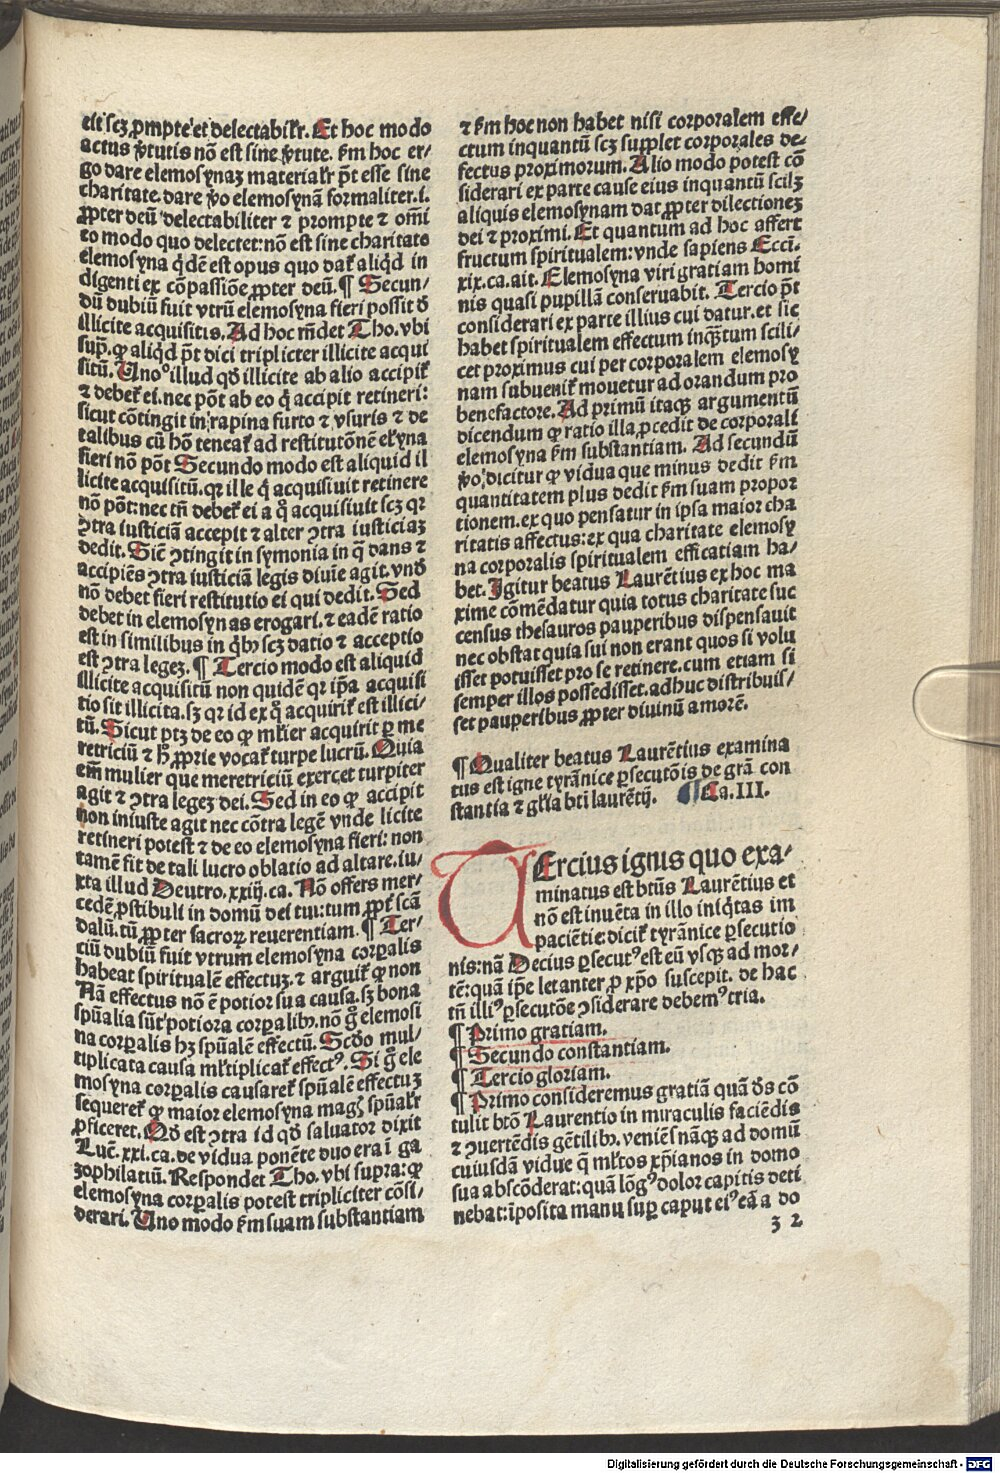 cit scꝫ ꝓmpte et delectabilr̃. Et hoc modo
actus ꝟtutis nõ est sine ꝟtute. ẜm hoc er⸗
go dare elemosynaꝫ materialr̃ põt esse sine
charitate. dare ꝟo elemosynã formaliter .i.
ꝓpter deũ delectabiliter ⁊ prompte ⁊ om̃i
eo modo quo delectet: nõ est sine charitate
elemosyna q̇dẽ est opus quo dat̃ aliq̇d in
digenti ex cõpassiõe ꝓpter deũ. ¶ Secun⸗
dũ dubiũ fuit vtrũ elemosyna fieri possit ď
illicite acquisitis. Ad hoc rñdet Tho. vbi
sup̃. ꝙ aliq̇d põt dici tripliciter illicite acqui
situ̅. Unoꝰ illud qď illicite ab alio accipit̃
⁊ debet̃ ei. nec põt ab eo q̇ accipit retineri:
sicut cõtingit in rapina furto ⁊ vsuris ⁊ de
talibus cũ hõ teneat̃ ad restitutõnẽ elẽyna
fieri nõ põt Secundo modo est aliquid il
licite acquisitũ. qr ille q̇ acquisiuit retinere
nõ põt: nec tñ debet̃ ei a q̊ acquisiuit scꝫ qr
ꝯtra iusticiã accepit ⁊ alter ꝯtra iusticiaꝫ
dedit. Sic̃ ꝯtingit in symonia in q̃ dans ⁊
accipiẽs ꝯtra iusticiã legis diuie̅ agit. vnď
nõ debet fieri restitutio ei qui dedit. Sed
debet in elemosynas erogari. ⁊ eadẽ ratio
est in similibus in q̇bꝰ scꝫ datio ⁊ acceptio
est ꝯtra legeꝫ. ¶ Tercio modo est aliquid
illicite acquisitũ non quidẽ qr ip̃a acquisi
tio sit illicita. sꝫ qr id ex q̊ acquirit̃ est illici⸗
tũ. Sicut ptꝫ de eo ꝙ ml̃ier acquirit ꝑ me
retriciũ ⁊ h̊ ꝓprie vocat̃ turpe lucrũ. Quia
em̃ mulier que meretriciũ exercet turpiter
agit ⁊ ꝯtra legeꝫ dei. Sed in eo ꝙ accipit
non iniuste agit nec cõtra legẽ vnde licite
retineri potest ⁊ de eo elemosyna fieri: non
tamẽ fit de tali lucro oblatio ad altare. iu⸗
xta illud Deutro. xxiij. ca. Nõ offers mer⸗
cedẽ ꝓstibuli in domũ dei tui: tum ꝓpt̃ scã
dalũ. tũ ꝓpter sacroꝝ reuerentiam. ¶ Ter⸗
ciũ dubiũ fuit vtrum elemosyna corꝑalis
habeat spiritualẽ effectuꝫ. ⁊ arguit̃ ꝙ non
Nã effectus nõ ẽ potior sua causa. sꝫ bona
spũalia sũt potiora corꝑalibꝰ. nõ g̊ elemosi
na corꝑalis hꝫ spũalẽ effectũ. Scďo mul⸗
tiplicata causa ml̃tiplicat̃ effectꝰ. Si g̊ ele
mosyna corꝑalis causaret̃ spũalẽ effectuꝫ
sequeret̃ ꝙ maior elemosyna magꝭ spũalr̃
ꝓficeret. Qď est ꝯtra id qď saluator dixit
Luc̃. xxi. ca. de vidua ponẽte duo era ĩ ga
zophilatiũ. Respondet Tho. vbi supra: ꝙ
elemosyna corꝑalis potest tripliciter cõsi⸗
derari. Uno modo ẜm suam substantiam
⁊ ẜm hoc non habet nisi corporalem effe⸗
ctum inquantũ scꝫ supplet corporales de⸗
fectus proximorum. Alio modo potest cõ
siderari ex parte cause eius inquantũ scilꝫ
aliquis elemosynam dat ꝓpter dilectioneꝫ
dei ⁊ proximi. Et quantum ad hoc affert
fructum spiritualem: vnde sapiens Ecci̅.
xix. ca. ait. Elemosyna viri gratiam homi
nis quasi pupillã conseruabit. Tercio põt
considerari ex parte illius cui datur. et sic
habet spiritualem effectum inq̃ꝫtum scili⸗
cet proximus cui per corporalem elemosy
nam subuenit̃ mouetur ad orandum pro
benefactore. Ad primũ itaqꝫ argumentũ
dicendum ꝙ ratio illa ꝓcedit de corporali
elemosyna ẜm substantiam. Ad secundũ
ꝟo: dicitur ꝙ vidua que minus dedit ẜm
quantitatem plus dedit ẜm suam propor
tionem. ex quo pensatur in ipsa maior cha
ritatis affectus: ex qua charitate elemosy
na corporalis spiritualem efficatiam ha⸗
bet. Igitur beatus Laurẽtius ex hoc ma
xime cõmẽdatur quia totus charitate suc
census thesauros pauperibus dispensauit
nec obstat quia sui non erant quos si volu
isset potuisset pro se retinere. cum etiam si
semper illos possedisset. adhuc distribuis⸗
set pauperibus ꝓpter diuinũ amorẽ.
¶ Qualiter beatus Laurẽtius examina
tus est igne tyrãnice ꝑsecutõis de grã con
stantia ⁊ gl̃ia bti̅ laurẽtij. ¶ Ca. III.
TErcius ignis quo exa⸗
minatus est btũs Laurẽtius et
nõ est inuẽta in illo iniq̇tas im
paciẽtie: dicit̃ tyrãnice ꝑsecutio
nis: nã Decius ꝑsecutꝰ est eũ vsqꝫ ad mor⸗
tẽ: quã ip̃e letanter ꝓ xp̃o suscepit. de hac
tñ illiꝰ ꝑsecutõe ꝯsiderare debemꝰ tria.
¶ Primo gratiam.
¶ Secundo constantiam.
¶ Tercio gloriam.
¶ Primo consideremus gratiã quã ďs cõ
tulit btõ Laurentio in miraculis faciẽdis
⁊ ꝯuertẽdis gẽtilibꝰ. veniẽs nãqꝫ ad domũ
cuiusdã vidue q̃ ml̃tos xp̃ianos in domo
sua abscõderat: quã lõgꝰ dolor capitis deti
nebat: ĩposita manu suꝑ caput eiꝰ eã a do
z 2
Digitalisierung gefördert durch die Deutsche Forschungsgemeinschaft - DFG